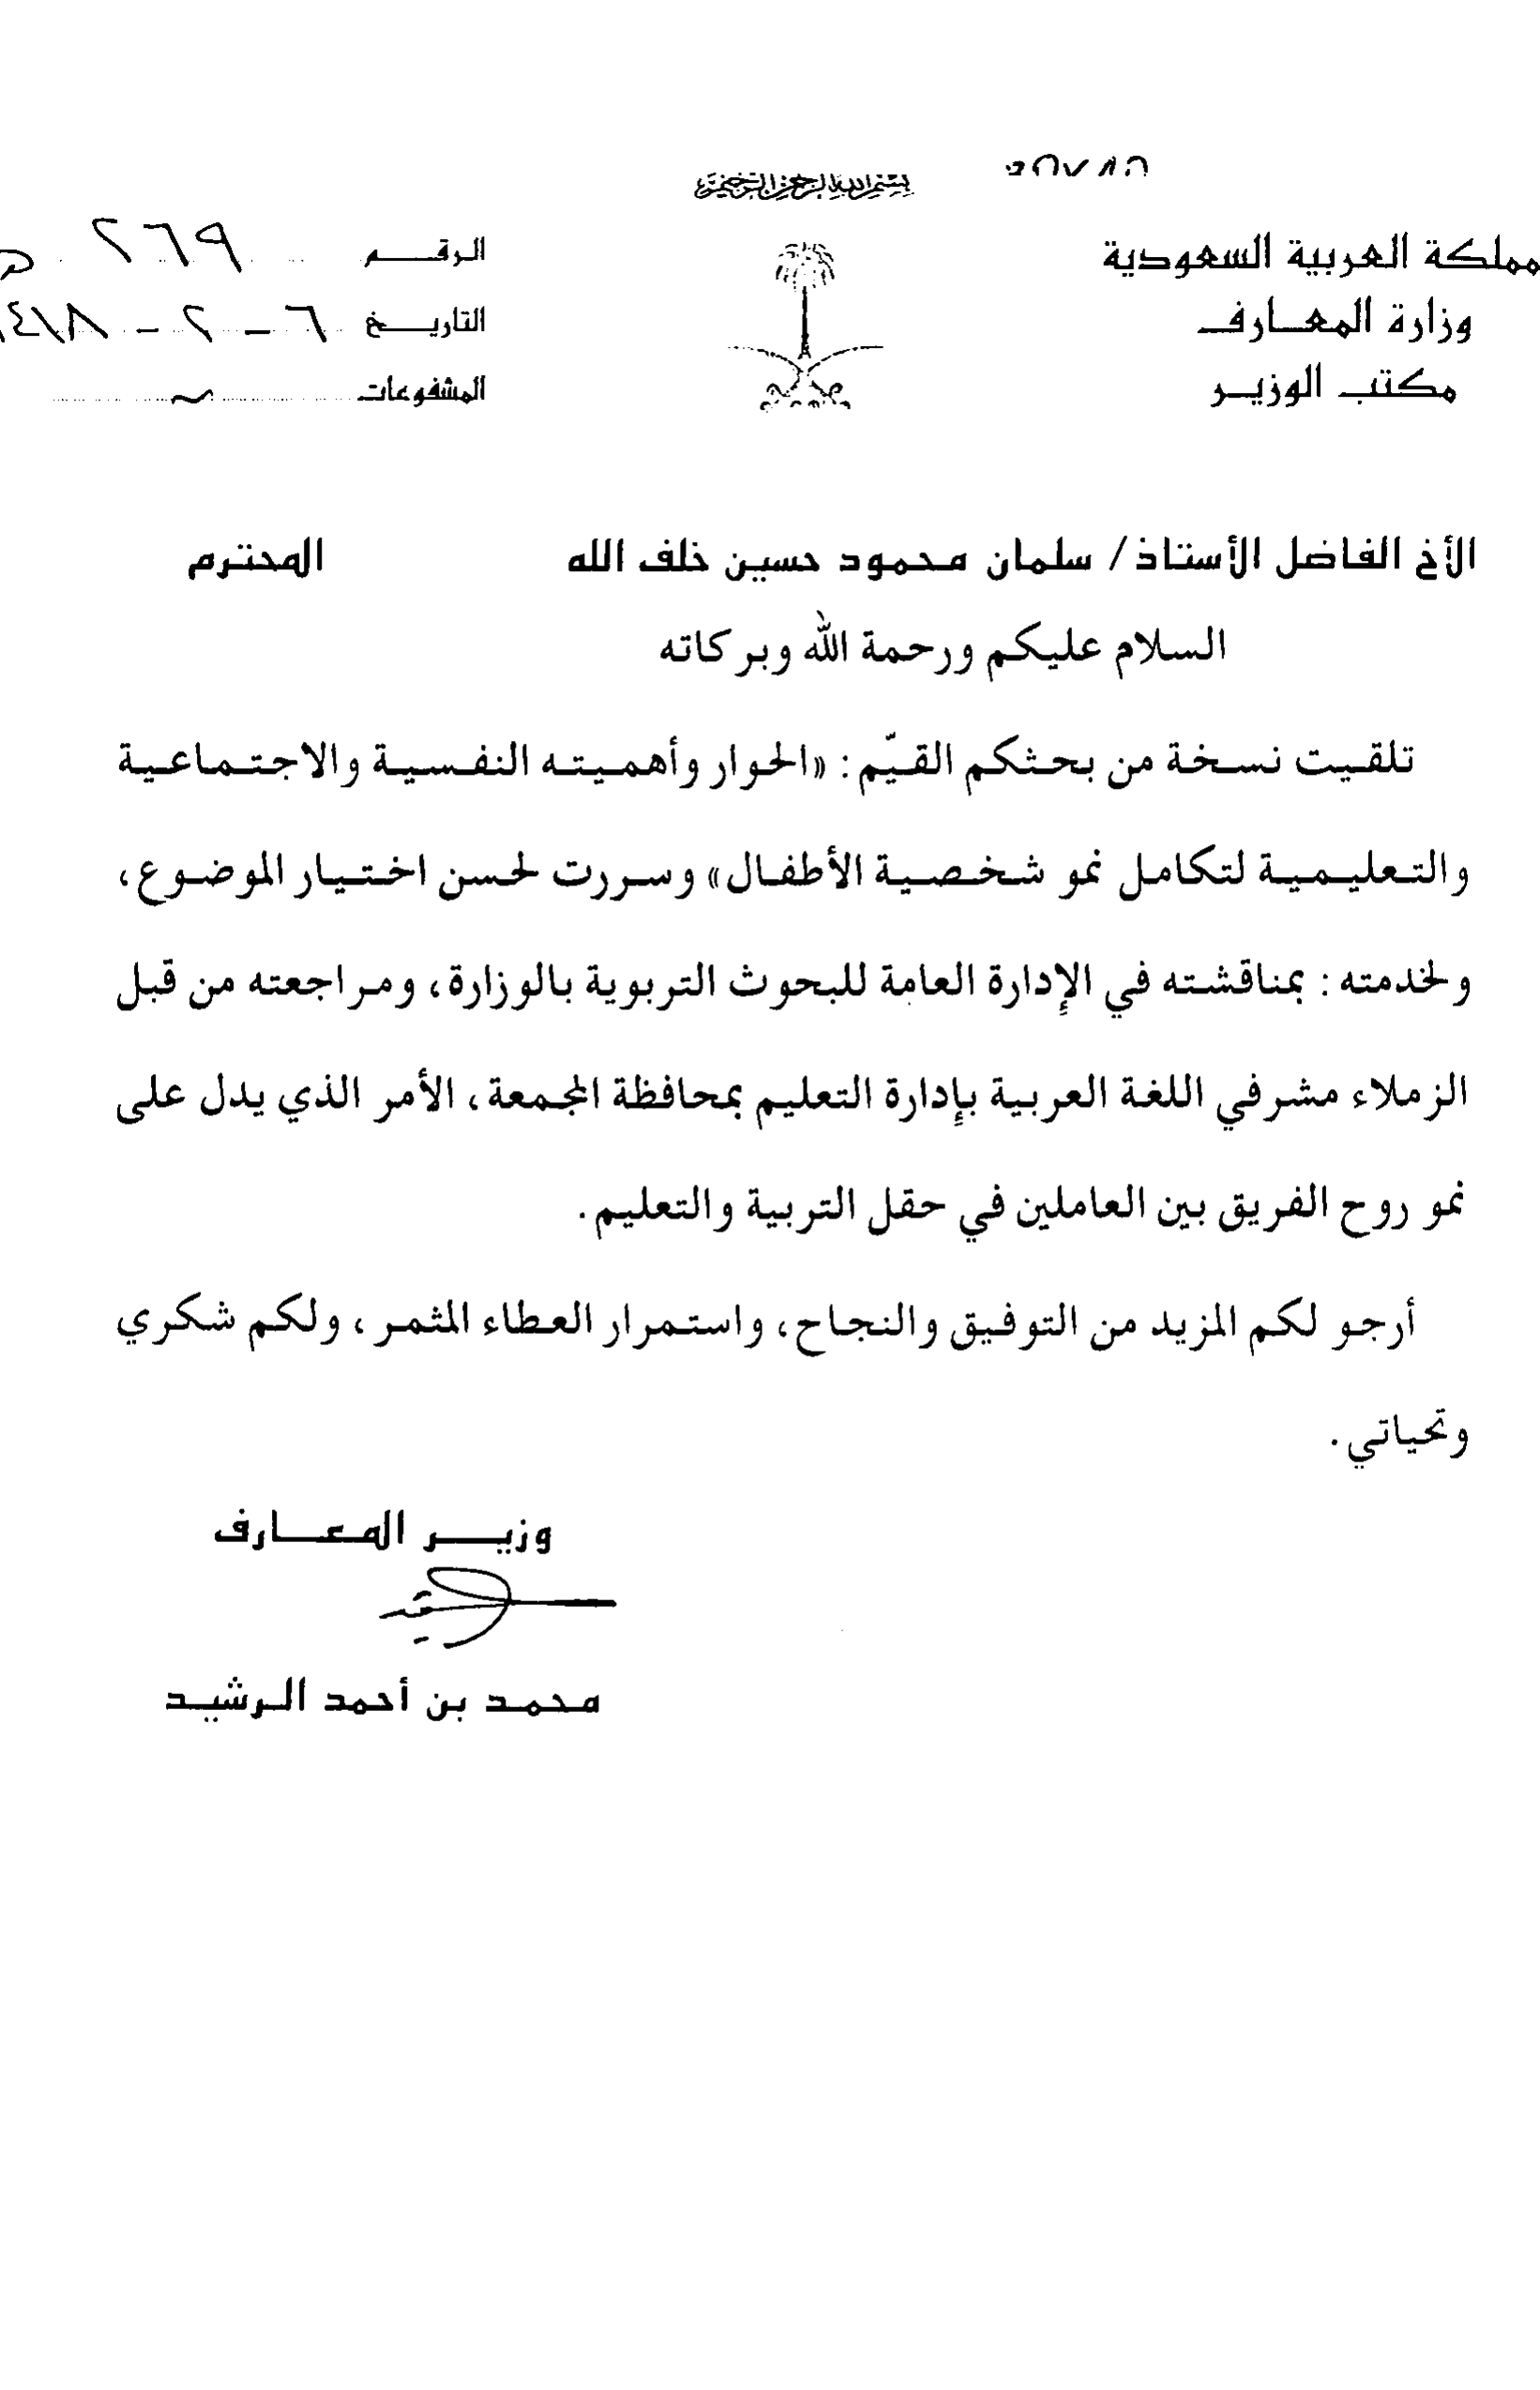 بسم الله الرحمن الرحيم
مملكة العربية السعودية
وزارة المعارف
مكتب الوزير
الرقم ٢٦٩
التاريخ ٦ - ٢ - ١٤١٨
المشفوعات
الأخ الفاضل الأستاذ/ سلمان محمود حسين خلف الله المحترم
السلام عليكم ورحمة الله وبركاته
تلقيت نسخة من بحثكم القيّم: «الحوار وأهميته النفسية والاجتماعية
والتعليمية لتكامل نمو شخصية الأطفال» وسررت لحسن اختيار الموضوع،
ولخدمته: بمناقشته في الإدارة العامة للبحوث التربوية بالوزارة، ومراجعته من قبل
الزملاء مشرفي اللغة العربية بإدارة التعليم بمحافظة المجمعة، الأمر الذي يدل على
نمو روح الفريق بين العاملين في حقل التربية والتعليم.
أرجو لكم المزيد من التوفيق والنجاح، واستمرار العطاء المثمر، ولكم شكري
وتحياتي.
وزير المعارف
محمد بن أحمد الرشيد